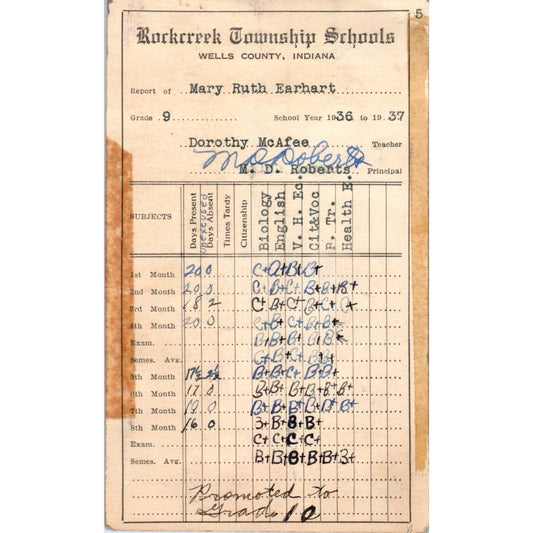 5
Rockcreek Township Schools
WELLS COUNTY, INDIANA
Report of Mary Ruth Earhart
Grade 9 School Year 1936 to 1937
Dorothy McAfee Teacher
M D Roberts
M. D. Roberts Principal
SUBJECTS Days Present Unexcused Days Absent Times Tardy Citizenship Biology English V. H. Ec. Cit&Voc P. Tr. Health E.
1st Month 20 0 C+ A+ B+ B+
2nd Month 20 0 C B+ C+ B+ B+ B+
3rd Month 18 2 C+ B+ C+ B+ C+ C+
4th Month 20 0 C+ B+ C+ B+
Exam.
Semes. Avg. C+ B+ C+
5th Month 17½ 2½ B+ B+ C+ B B+
6th Month 17 0 B+ B+ B+ B+ B+ B+
7th Month 19 0 B+ B+ B+ B+ B+ B+
8th Month 16 0 B+ B+ B+ B+
Exam. C+ C+ C C+
Semes. Avg. B+ B+ B+ B+ B+ B+
Promoted to
Grade 10